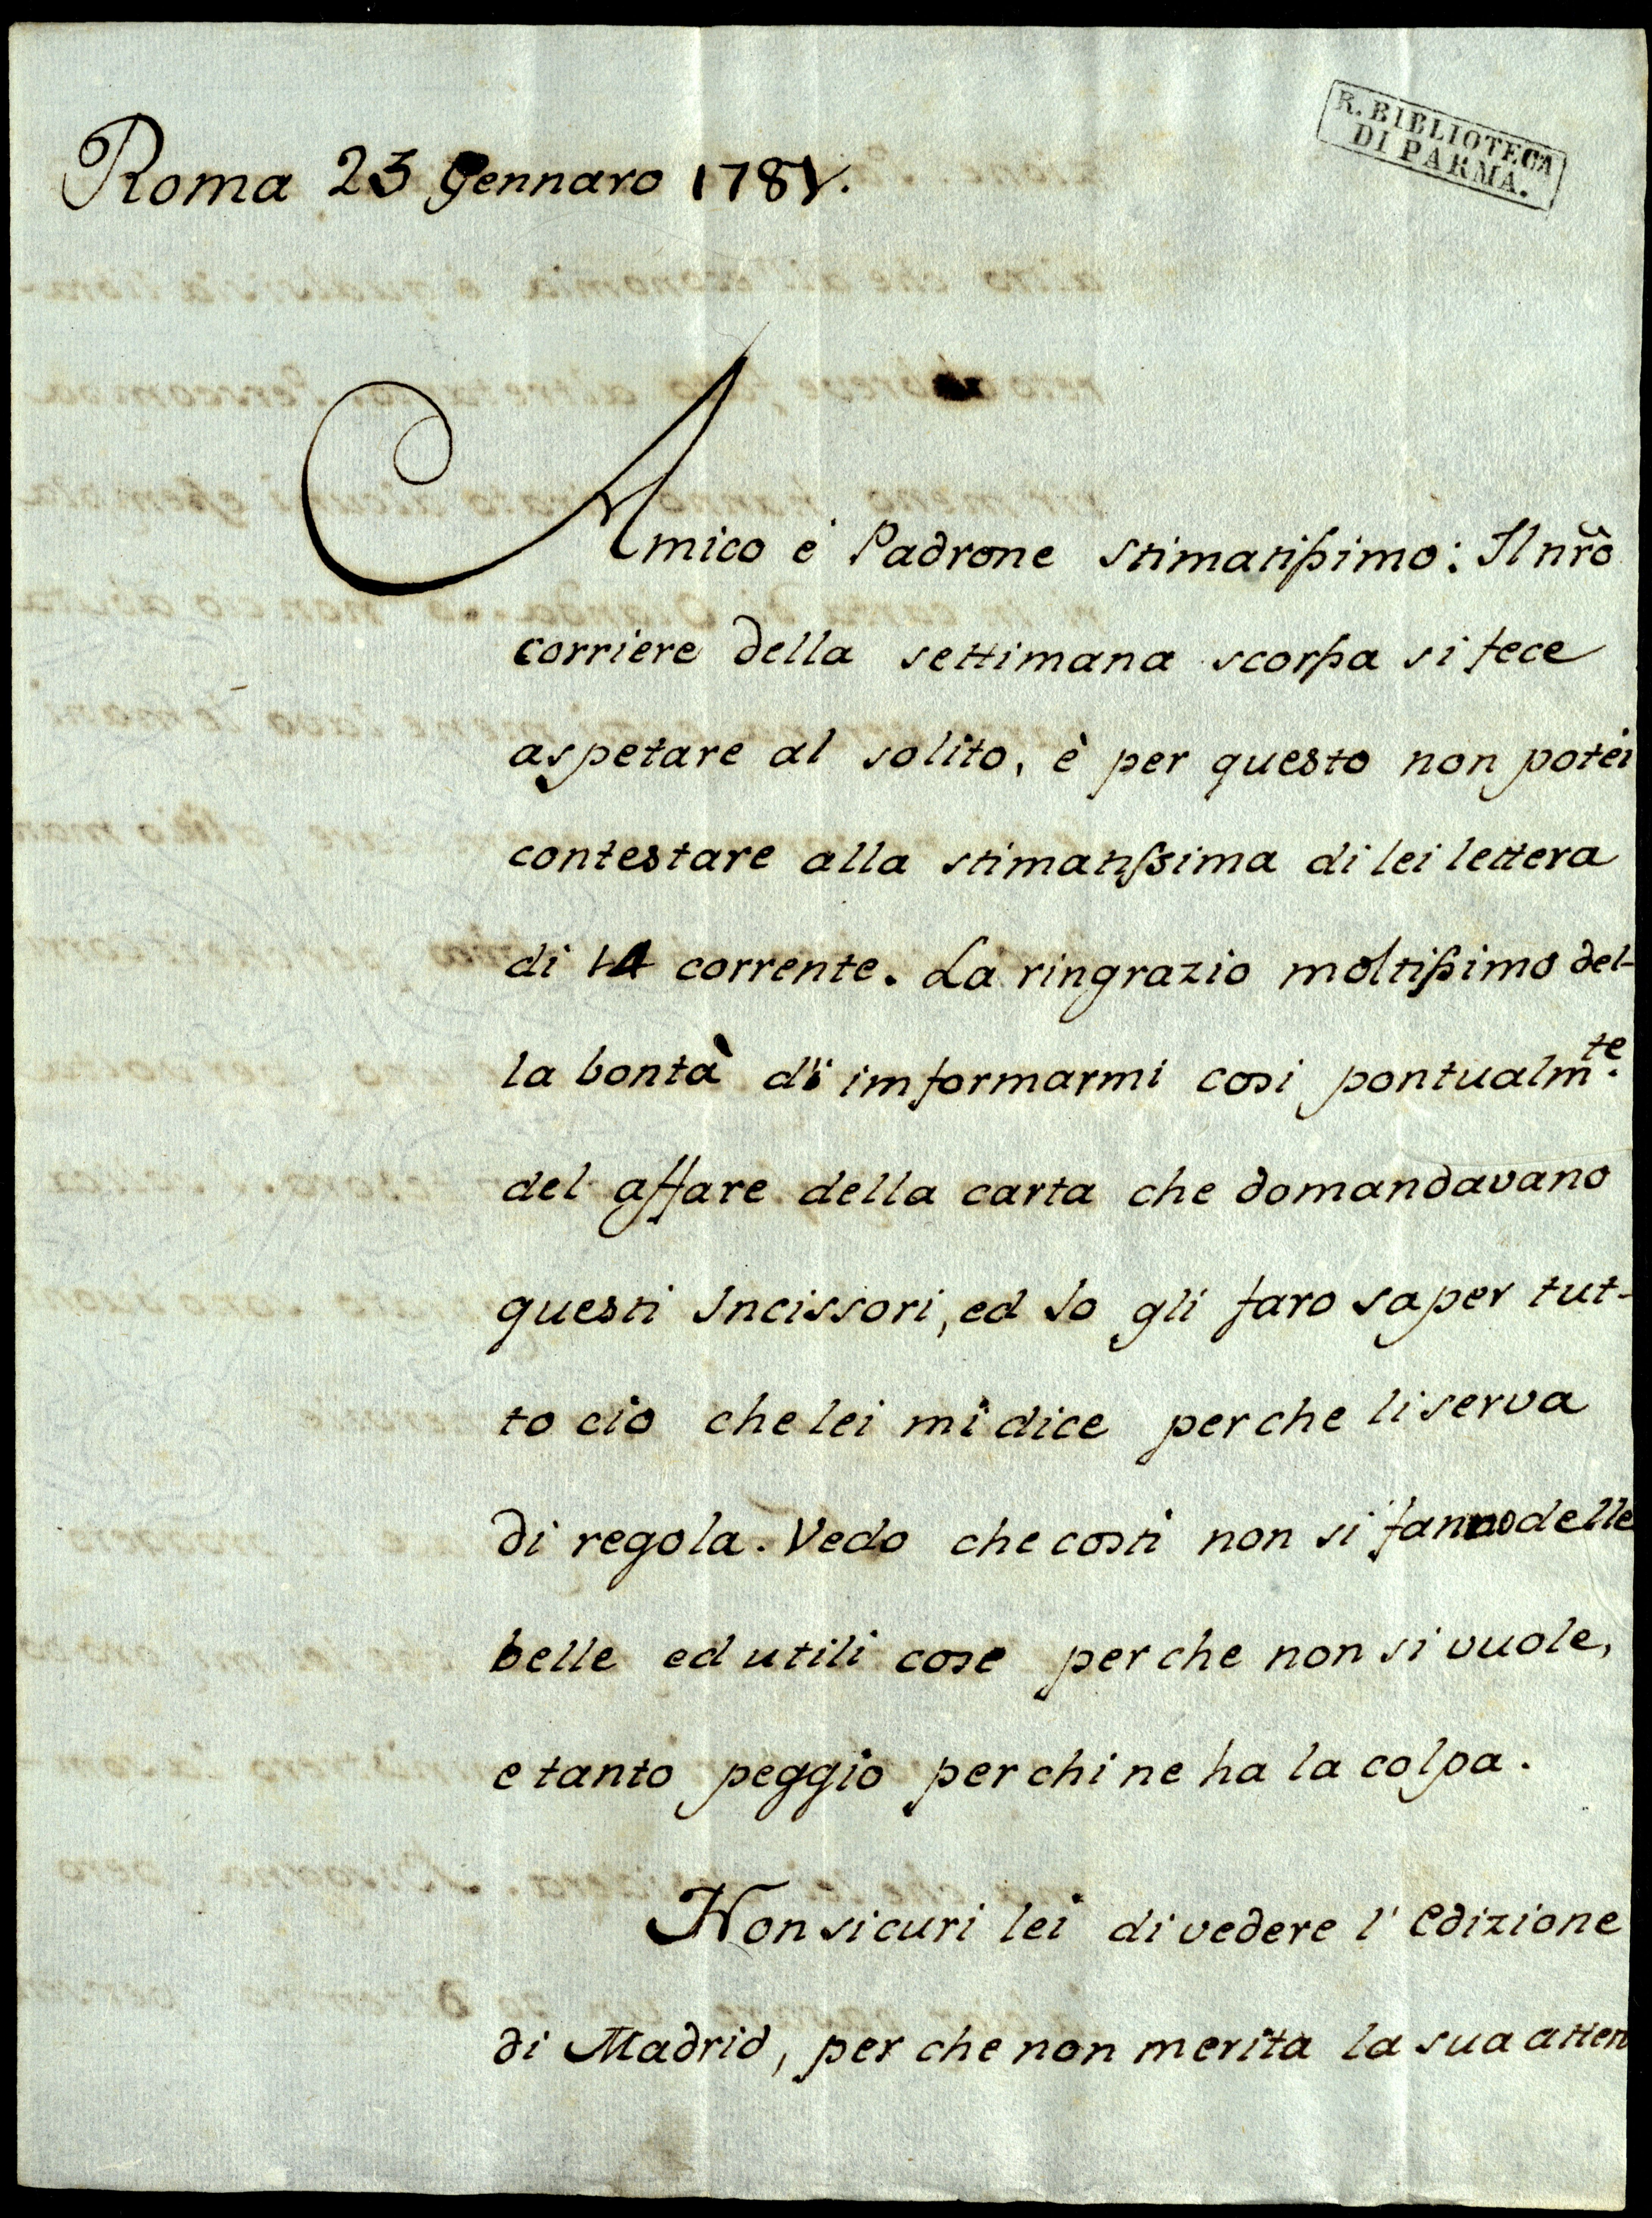 R. BIBLIOTECA
DI PARMA.
Roma 23 Gennaro 1781.
Amico è Padrone stimatissimo: Il nr̃o
corriere della settimana scorsa si fece
aspetare al solito, è per questo non potei
contestare alla stimatissima di lei lettera
di 14 corrente. La ringrazio moltissimo del-
la bontà di imformarmi cosi pontualm.te
del affare della carta che domandavano
questi Incissori, ed Io gli faro saper tut-
to cio che lei mi dice perche li serva
di regola. Vedo che costi non si fanno delle
belle ed utili cose per che non si vuole,
e tanto peggio per chi ne ha la colpa.
Non si curi lei di vedere l' edizione
di Madrid, per che non merita la sua atten